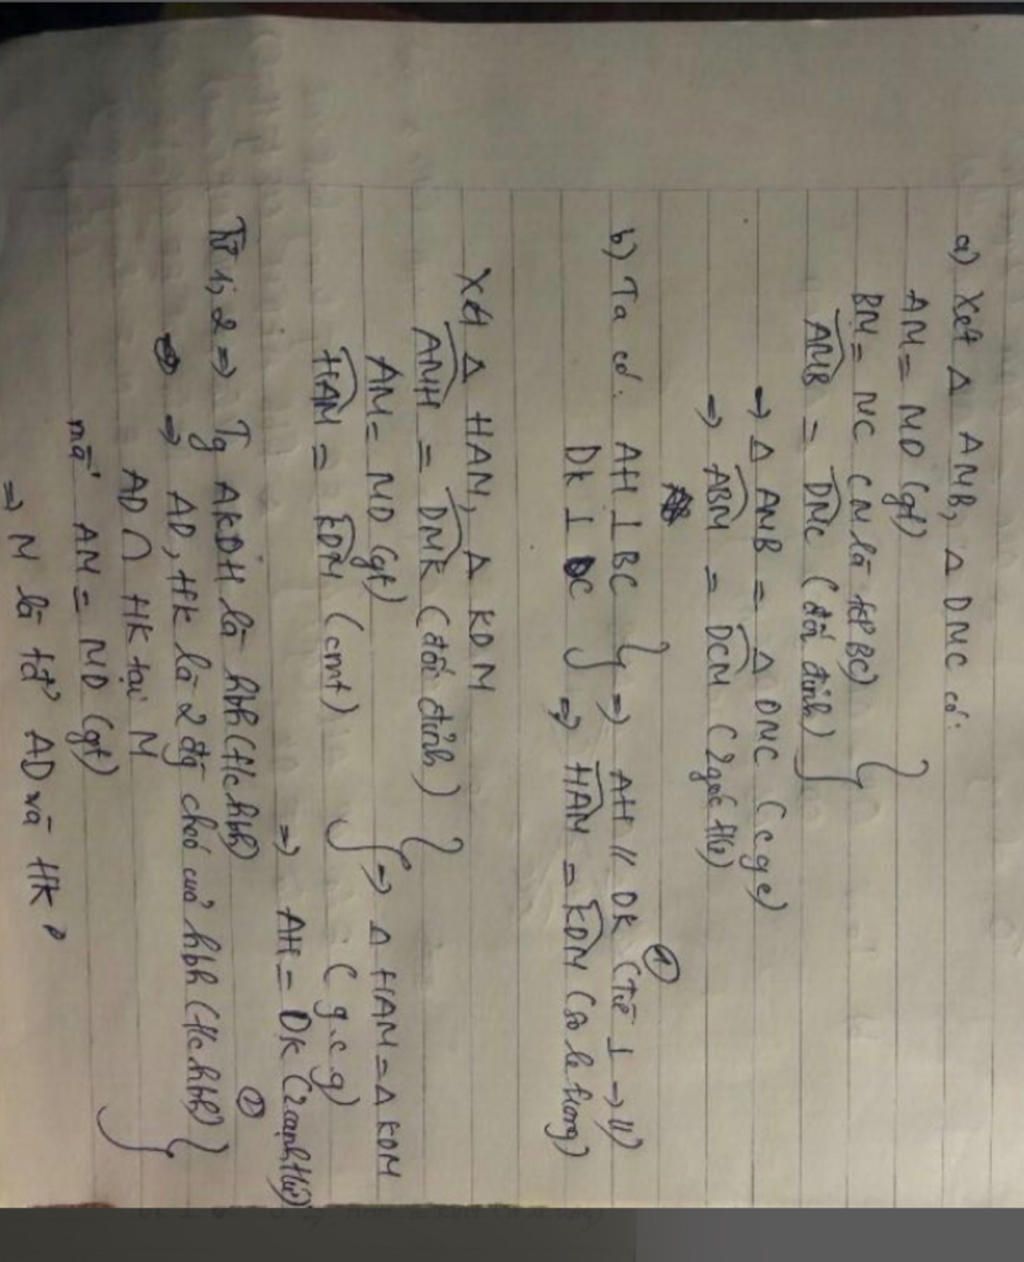 a) Xét Δ AMB, Δ DMC có:
AM = MD (gt)
BM = MC (M là tđ BC)
AMB = DMC (đối đỉnh)
→ Δ AMB = Δ DMC (c g c)
⇒ ABM = DCM (2 góc t/ứ)
b) Ta có: AH ⊥ BC } ⇒ AH // DK (Từ ⊥ → //) ①
DK ⊥ BC ⇒ HAM = KDM (so le trong)
Xét Δ HAM, Δ KDM
AMH = DMK (đối đỉnh)
AM = MD (gt) } ⇒ Δ HAM = Δ KDM
HAM = KDM (cmt) (g.c.g)
⇒ AH = DK (2 cạnh t/ứ) ②
Từ 1, 2 ⇒ Tg AKDH là hbh (t/c hbh)
⇒ AD, HK là 2 đg chéo của hbh (t/c hbh)
AD ∩ HK tại M
mà AM = MD (gt)
⇒ M là tđ AD và HK